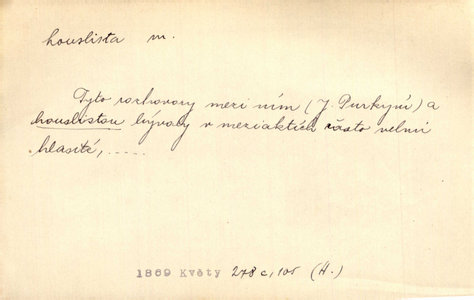 houslista m.
Tyto rozhovory mezi ním (J. Purkyní) a
houslistou bývaly v meziaktích často velmi
hlasité, .....
1869 Květy 278 c, 105 (H.)